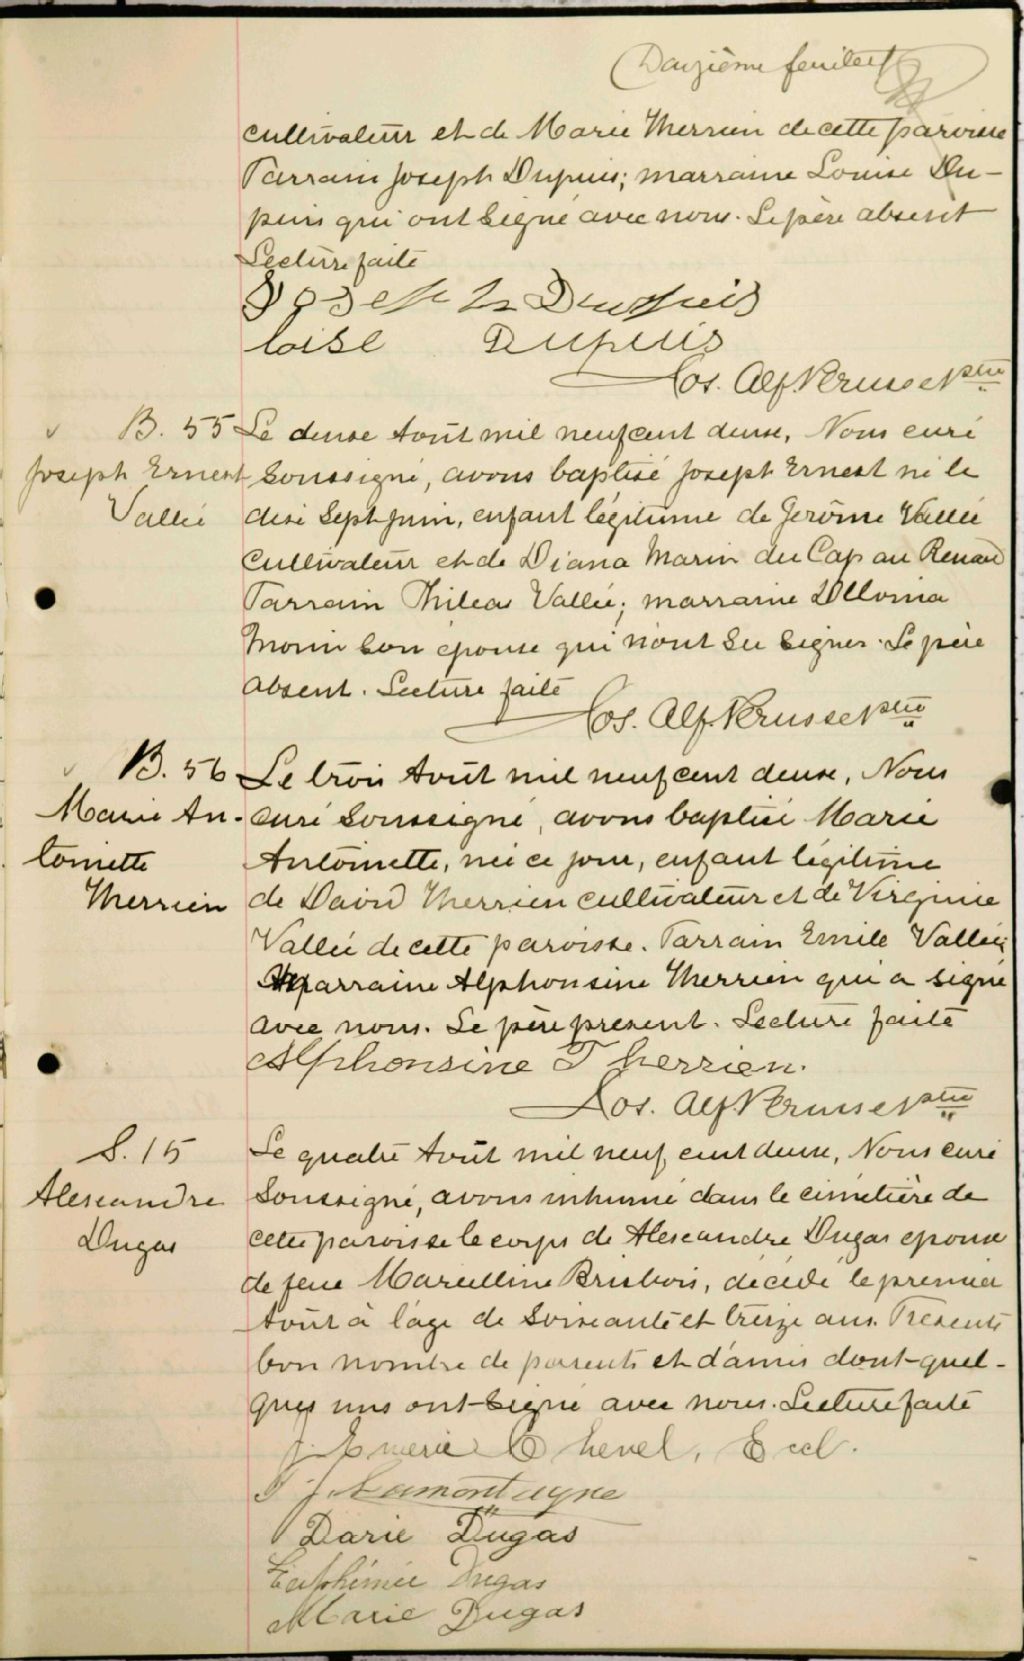 Douzième feuillet
cultivateur et de Marie Therrien de cette paroisse
Parrain Joseph Dupuis; marraine Louise Du-
puis qui ont signé avec nous. Le père absent
Lecture faite
Joseph Dupuis
loise Dupuis
Jos. Alf. Perusse ptre
B. 55
Joseph Ernest
Vallée
Le deuxe Août mil neuf cent deuxe, Nous curé
soussigné, avons baptisé Joseph Ernest né le
dixe Sept Juin, enfant légitime de Jerôme Vallée
cultivateur et de Diana Marin du Cap au Renard
Parrain Phileas Vallée; marraine
Morin son épouse qui n'ont su signer. Le père
absent. Lecture faite
Jos. Alf. Perusse ptre
B. 56
Marie An-
toinette
Therrien
Le trois Août mil neuf cent deuxe, Nous
curé soussigné, avons baptisé Marie
Antoinette, née ce jour, enfant légitime
de David Therrien cultivateur et de Virginie
Vallée de cette paroisse. Parrain Emile Vallée;
marraine Alphonsine Therrien qui a signé
avec nous. Le père present. Lecture faite
Alphonsine Therrien.
Jos. Alf. Perusse ptre
S. 15
Alexandre
Dugas
Le quatre Août mil neuf cent deuxe, Nous curé
soussigné, avons inhumé dans le cimetière de
cette paroisse le corps de Alexandre Dugas epoux
de feue Marcelline Brisbois, décédé le premier
Août à l'age de soixante et treize ans. Présents
bon nombre de parents et d'amis dont quel-
ques uns ont signé avec nous. Lecture faite
J. Emerie Chenel, Eccl.
J. Lamontagne
Darie Dugas
Euphémie Dugas
Marie Dugas